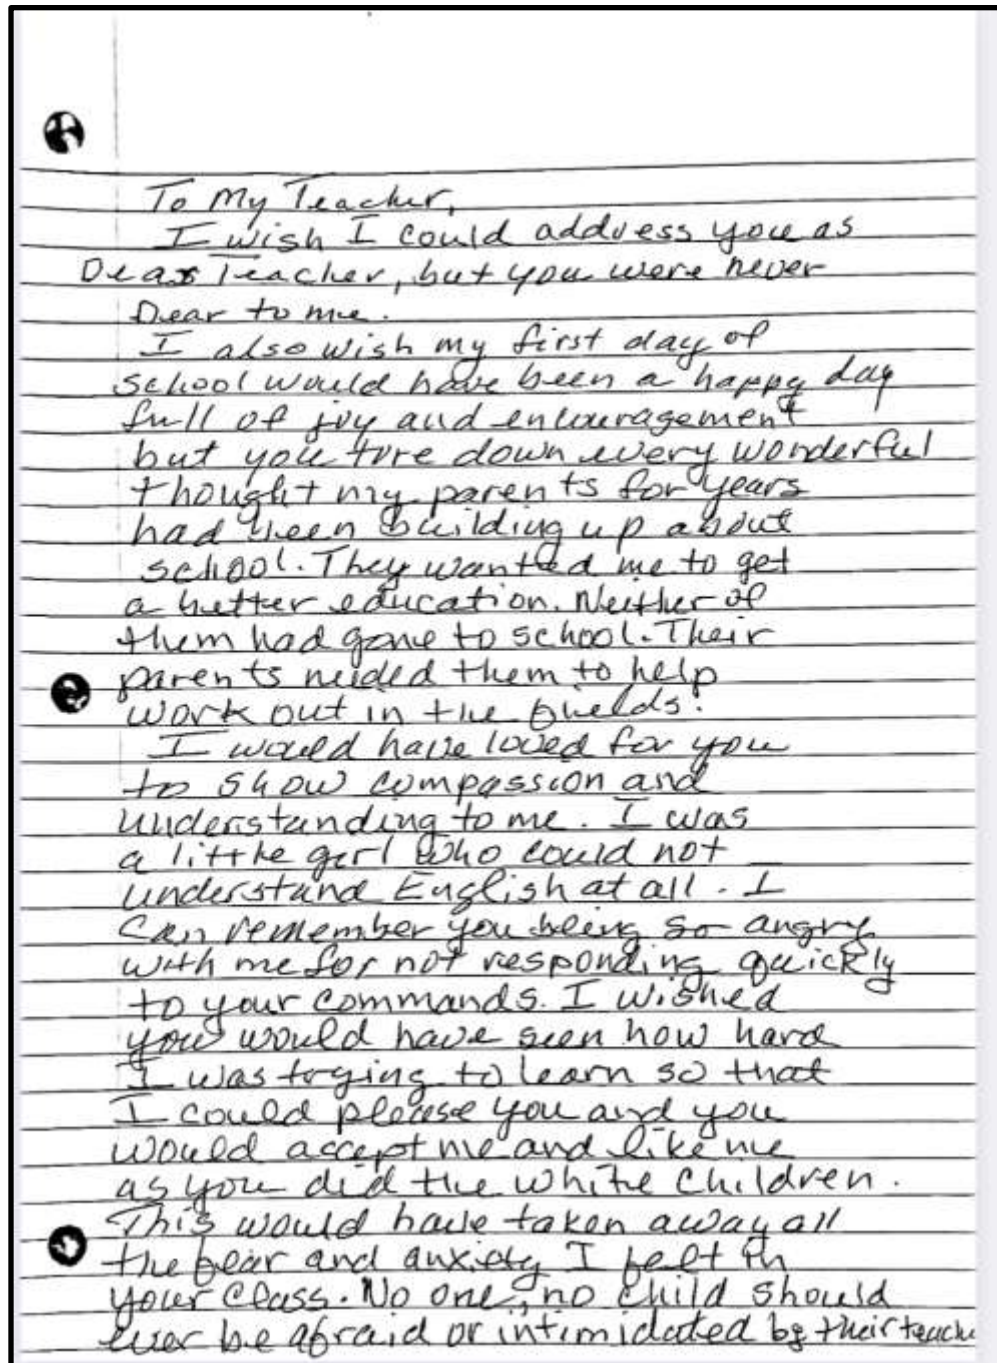 To My Teacher,
I wish I could address you as
Dear Teacher, but you were never
Dear to me.
I also wish my first day of
school would have been a happy day
full of joy and encouragement
but you tore down every wonderful
thought my parents for years
had been building up about
school. They wanted me to get
a better education. Neither of
them had gone to school. Their
parents needed them to help
work out in the fields.
I would have loved for you
to show compassion and
understanding to me. I was
a little girl who could not
understand English at all. I
can remember you being so angry
with me for not responding quickly
to your commands. I wished
you would have seen how hard
I was trying to learn so that
I could please you and you
would accept me and like me
as you did the white children.
This would have taken away all
the fear and anxiety I felt in
your class. No one, no child should
ever be afraid or intimidated by their teache